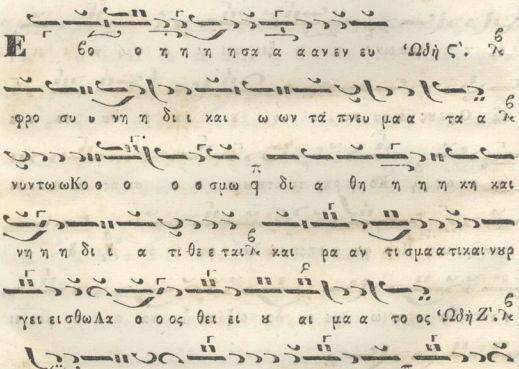 Ε βο ο η η η η σα α α αν εν ευ Ὠδὴ Ϛʹ.
φρο συ υ νη η δι ι και ω ων τα πνευ μα α τα α
νυντωωΚο ο ο ο ο σμω δι α θη η η η κη και
νη η η δι ι α τι θε ε ται και ρα αν τι σμαατικαινουρ
γει ει εισθωΛα ο ο ος θει ει υ αι μα α το ος Ὠδὴ Ζʹ.